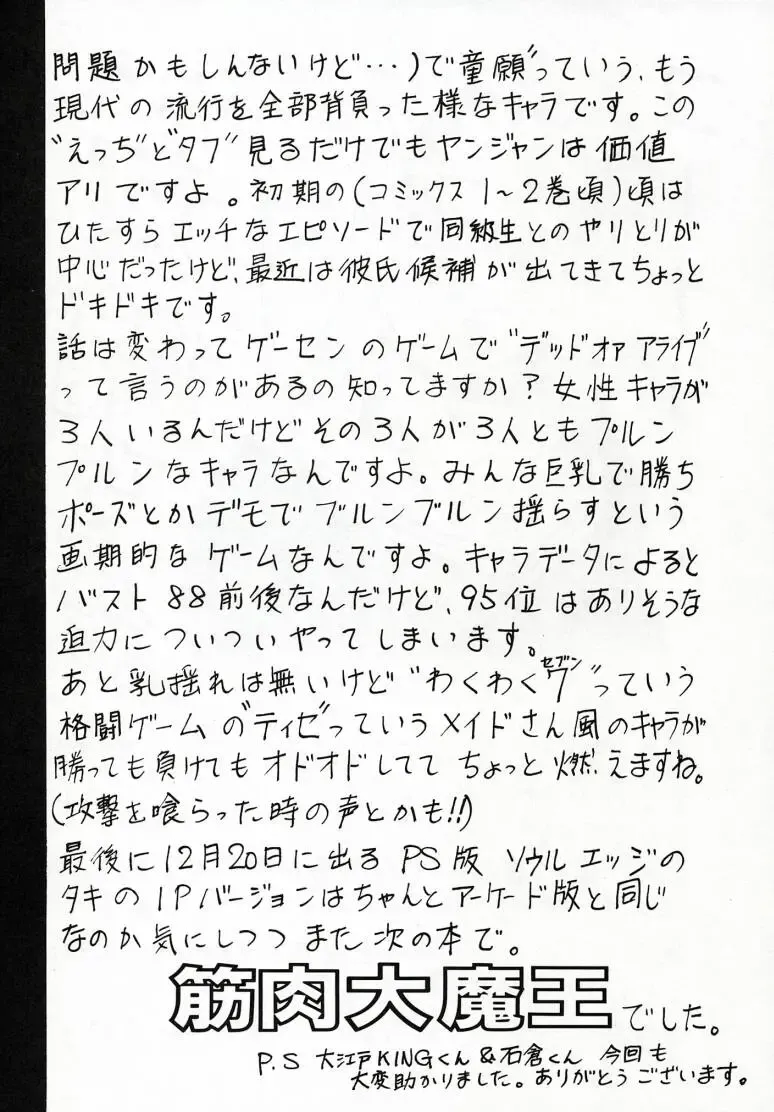 問題かもしんないけど…)で童顔”っていう、もう
現代の流行を全部背負った様なキャラです。この
“えっち”と“タブ”見るだけでもヤンジャンは価値
アリですよ。初期の(コミックス1～2巻頃)頃は
ひたすらエッチなエピソードで同級生とのやりとりが
中心だったけど、最近は彼氏候補が出てきてちょっと
ドキドキです。
話は変わってゲーセンのゲームで“デッドオァアライブ”
って言うのがあるの知ってますか?女性キャラが
3人いるんだけどその3人が3人ともプルン
プルンなキャラなんですよ。みんな巨乳で勝ち
ポーズとかデモでブルンブルン揺らすという
画期的なゲームなんですよ。キャラデータによると
バスト88前後なんだけど、95位はありそうな
迫力についついやってしまいます。
あと乳揺れは無いけど“わくわく7”っていう
セブン
格闘ゲームの“ティゼ”っていうメイドさん風のキャラが
勝っても負けてもオドオドしてて ちょっと燃えますね。
(攻撃を喰らった時の声とかも!!)
最後に12月20日に出る PS版 ソウルエッジの
タキの1Pバージョンはちゃんとアーケード版と同じ
なのか気にしつつ また次の本で。
筋肉大魔王でした。
P.S 大江戸KINGくん&石倉くん 今回も
大変助かりました。ありがとうございます。